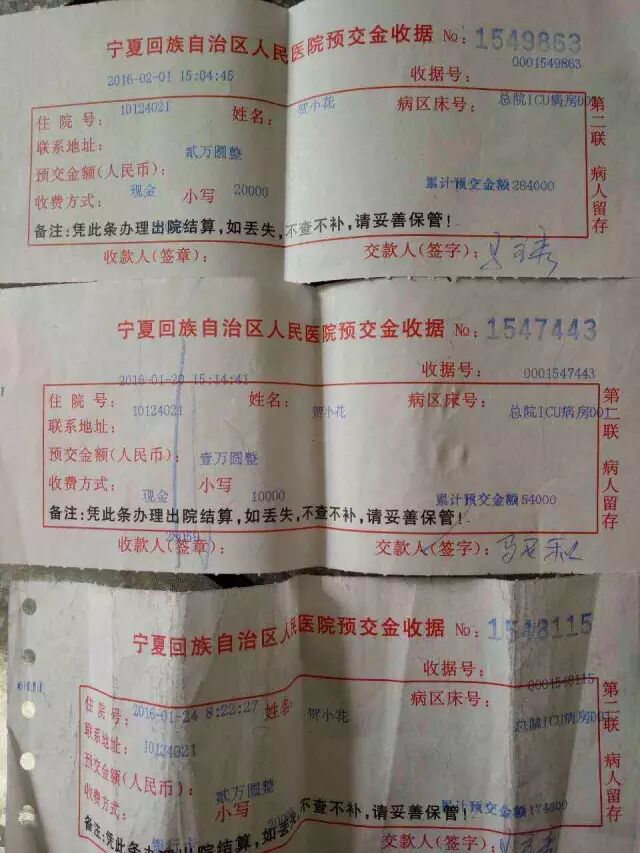 宁夏回族自治区人民医院预交金收据 No: 1549863
2016-02-01 15:04:45 收据号: 0001549863
住院号: 10124021 姓名: 贺小花 病区床号: 总院ICU病房001
联系地址:
预交金额(人民币): 贰万圆整
收费方式: 现金 小写 20000 累计预交金额284000
备注:凭此条办理出院结算,如丢失,不查不补,请妥善保管!
收款人(签章): 交款人(签字):
第二联 病人留存
宁夏回族自治区人民医院预交金收据 No: 1547443
2016-01-20 15:14:41 收据号: 0001547443
住院号: 10124021 姓名: 贺小花 病区床号: 总院ICU病房001
联系地址:
预交金额(人民币): 壹万圆整
收费方式: 现金 小写 10000 累计预交金额54000
备注:凭此条办理出院结算,如丢失,不查不补,请妥善保管!
收款人(签章): 交款人(签字):
第二联 病人留存
宁夏回族自治区人民医院预交金收据 No: 1548115
收据号: 0001548115
住院号: 2016-01-24 8:22:27 姓名: 贺小花 病区床号: 总院ICU病房001
联系地址: 10124021
预交金额(人民币): 贰万圆整
收费方式: 小写 累计预交金额174000
备注:凭此条办 如丢失,不查不补,请妥善保管!
银行卡 交款人(签字):
第二联 病人留存